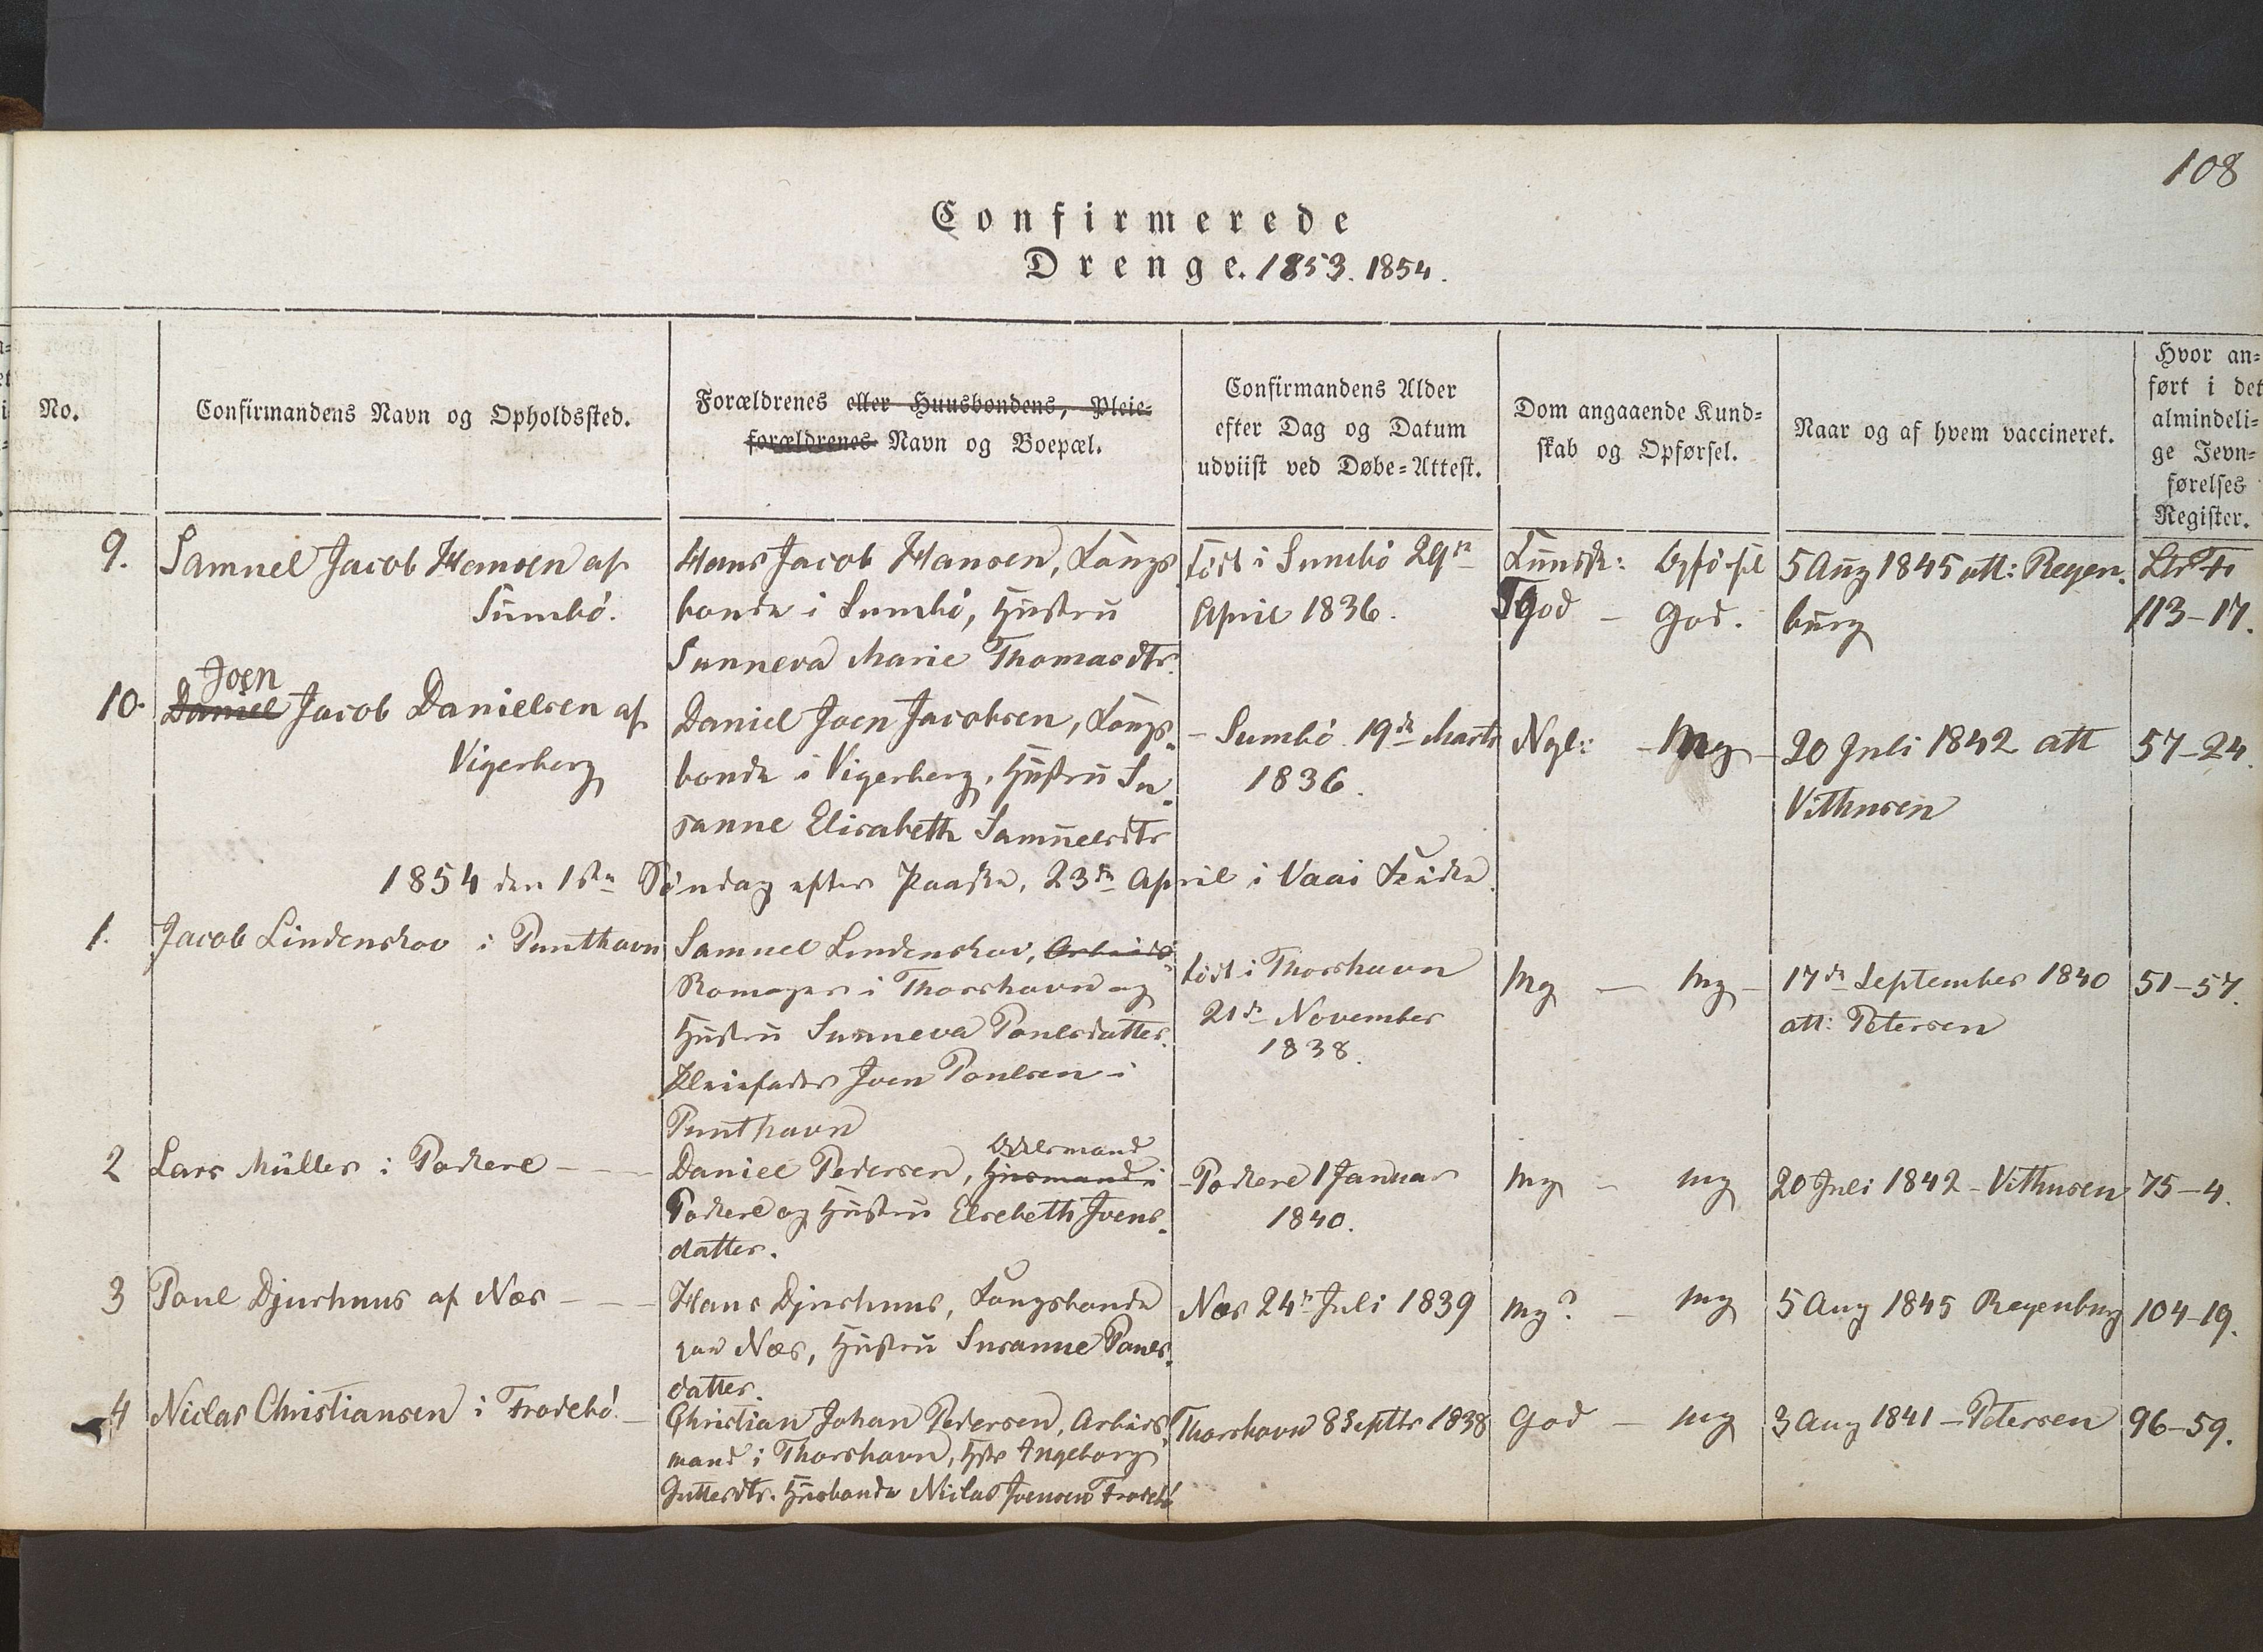 108
Confirmerede
Drenge. 1853. 1854.
No.
Confirmandens Navn og Opholdssted.
Forældrenes eller Huusbondens, Pleie-
forældrenes Navn og Boepæl.
Confirmandens Alder
efter Dag og Datum
udviist ved Døbe-Attest.
Dom angaaende Kund-
skab og Opførsel.
Naar og af hvem vaccineret.
Hvor an-
ført i det
almindeli-
ge Jevn-
førelses
Register.
9.
Samuel Jacob Hansen af
Sumbö.
Hans Jacob Hansen, Kongs
bonde i Sumbö, Hustru
Sunneva Marie Thomasdtr.
född i Sumbö 29de
April 1836.
Kundsk: Opförsel
Tgod - God.
5 Aug 1845 att: Regen-
burg
113-17.
10.
Joen
Daniel Jacob Danielsen af
Vigerberg
Daniel Joen Jacobsen, Kongs-
bonde i Vigerberg, Hustru Su-
sanne Elisabeth Samuelsdtr
- Sumbö 19de Marts
1836.
Ngl: - Mg -
20 Juli 1842 att
Vithusen
57-24.
1854 den 1ste Söndag efter Paaske, 23de April i Vaai Kirke.
1.
Jacob Lindenskov i Punthavn
Samuel Lindenskov, Arbeids-
Romager i Thorshavn og
Hustru Sunneva Poulsdatter.
Pleiefader Joen Poulsen i
Punthavn
född i Thorshavn
21de November
1838.
Mg - Mg -
17de September 1840
att: Petersen
51-57.
2
Lars Müller i Porkere
Daniel Pedersen, Husmand i
Odelsmand
Porkere og Hustru Elsebeth Joens-
datter.
- Porkere 1 Januar
1840.
Mg - Mg
20 Juli 1842 - Vithusen
75-4.
3
Poul Djurhuus af Næs
Hans Djurhuus, Kongsbonde
paa Næs, Hustru Susanne Pouls-
datter.
Næs 24de Juli 1839
Mg? - Mg
5 Aug 1845 Regenburg
104-19.
4
Niclas Christiansen i Frodebö.
Christian Johan Pedersen, Arbeids-
mand i Thorshavn, Hstr Ingeborg
Guttesdtr. Husbonde Niclas Joensen Frodebö
Thorshavn 8 Septbr 1838
God - Mg
3 Aug 1841 - Petersen
96-59.